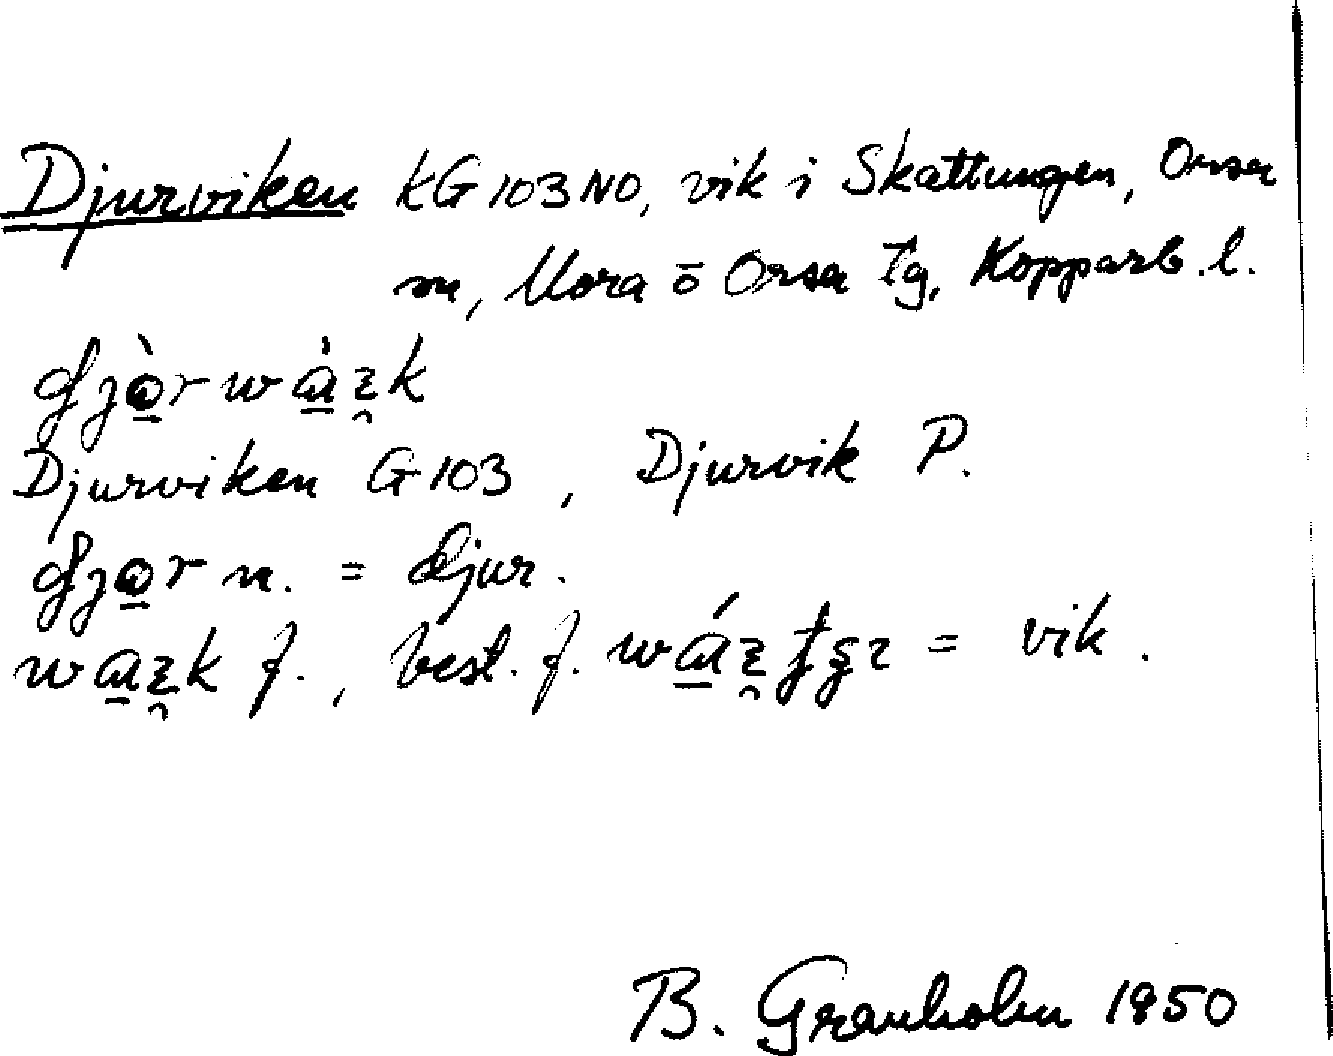 Djurviken KG 103 NO, vik i Skattungen, Orsa
sn, Mora o Orsa Tg, Kopparb. l.
Djurviken G 103, Djurvik P.
n. = djur.
f., best. f. = vik.
B. Granholm 1950